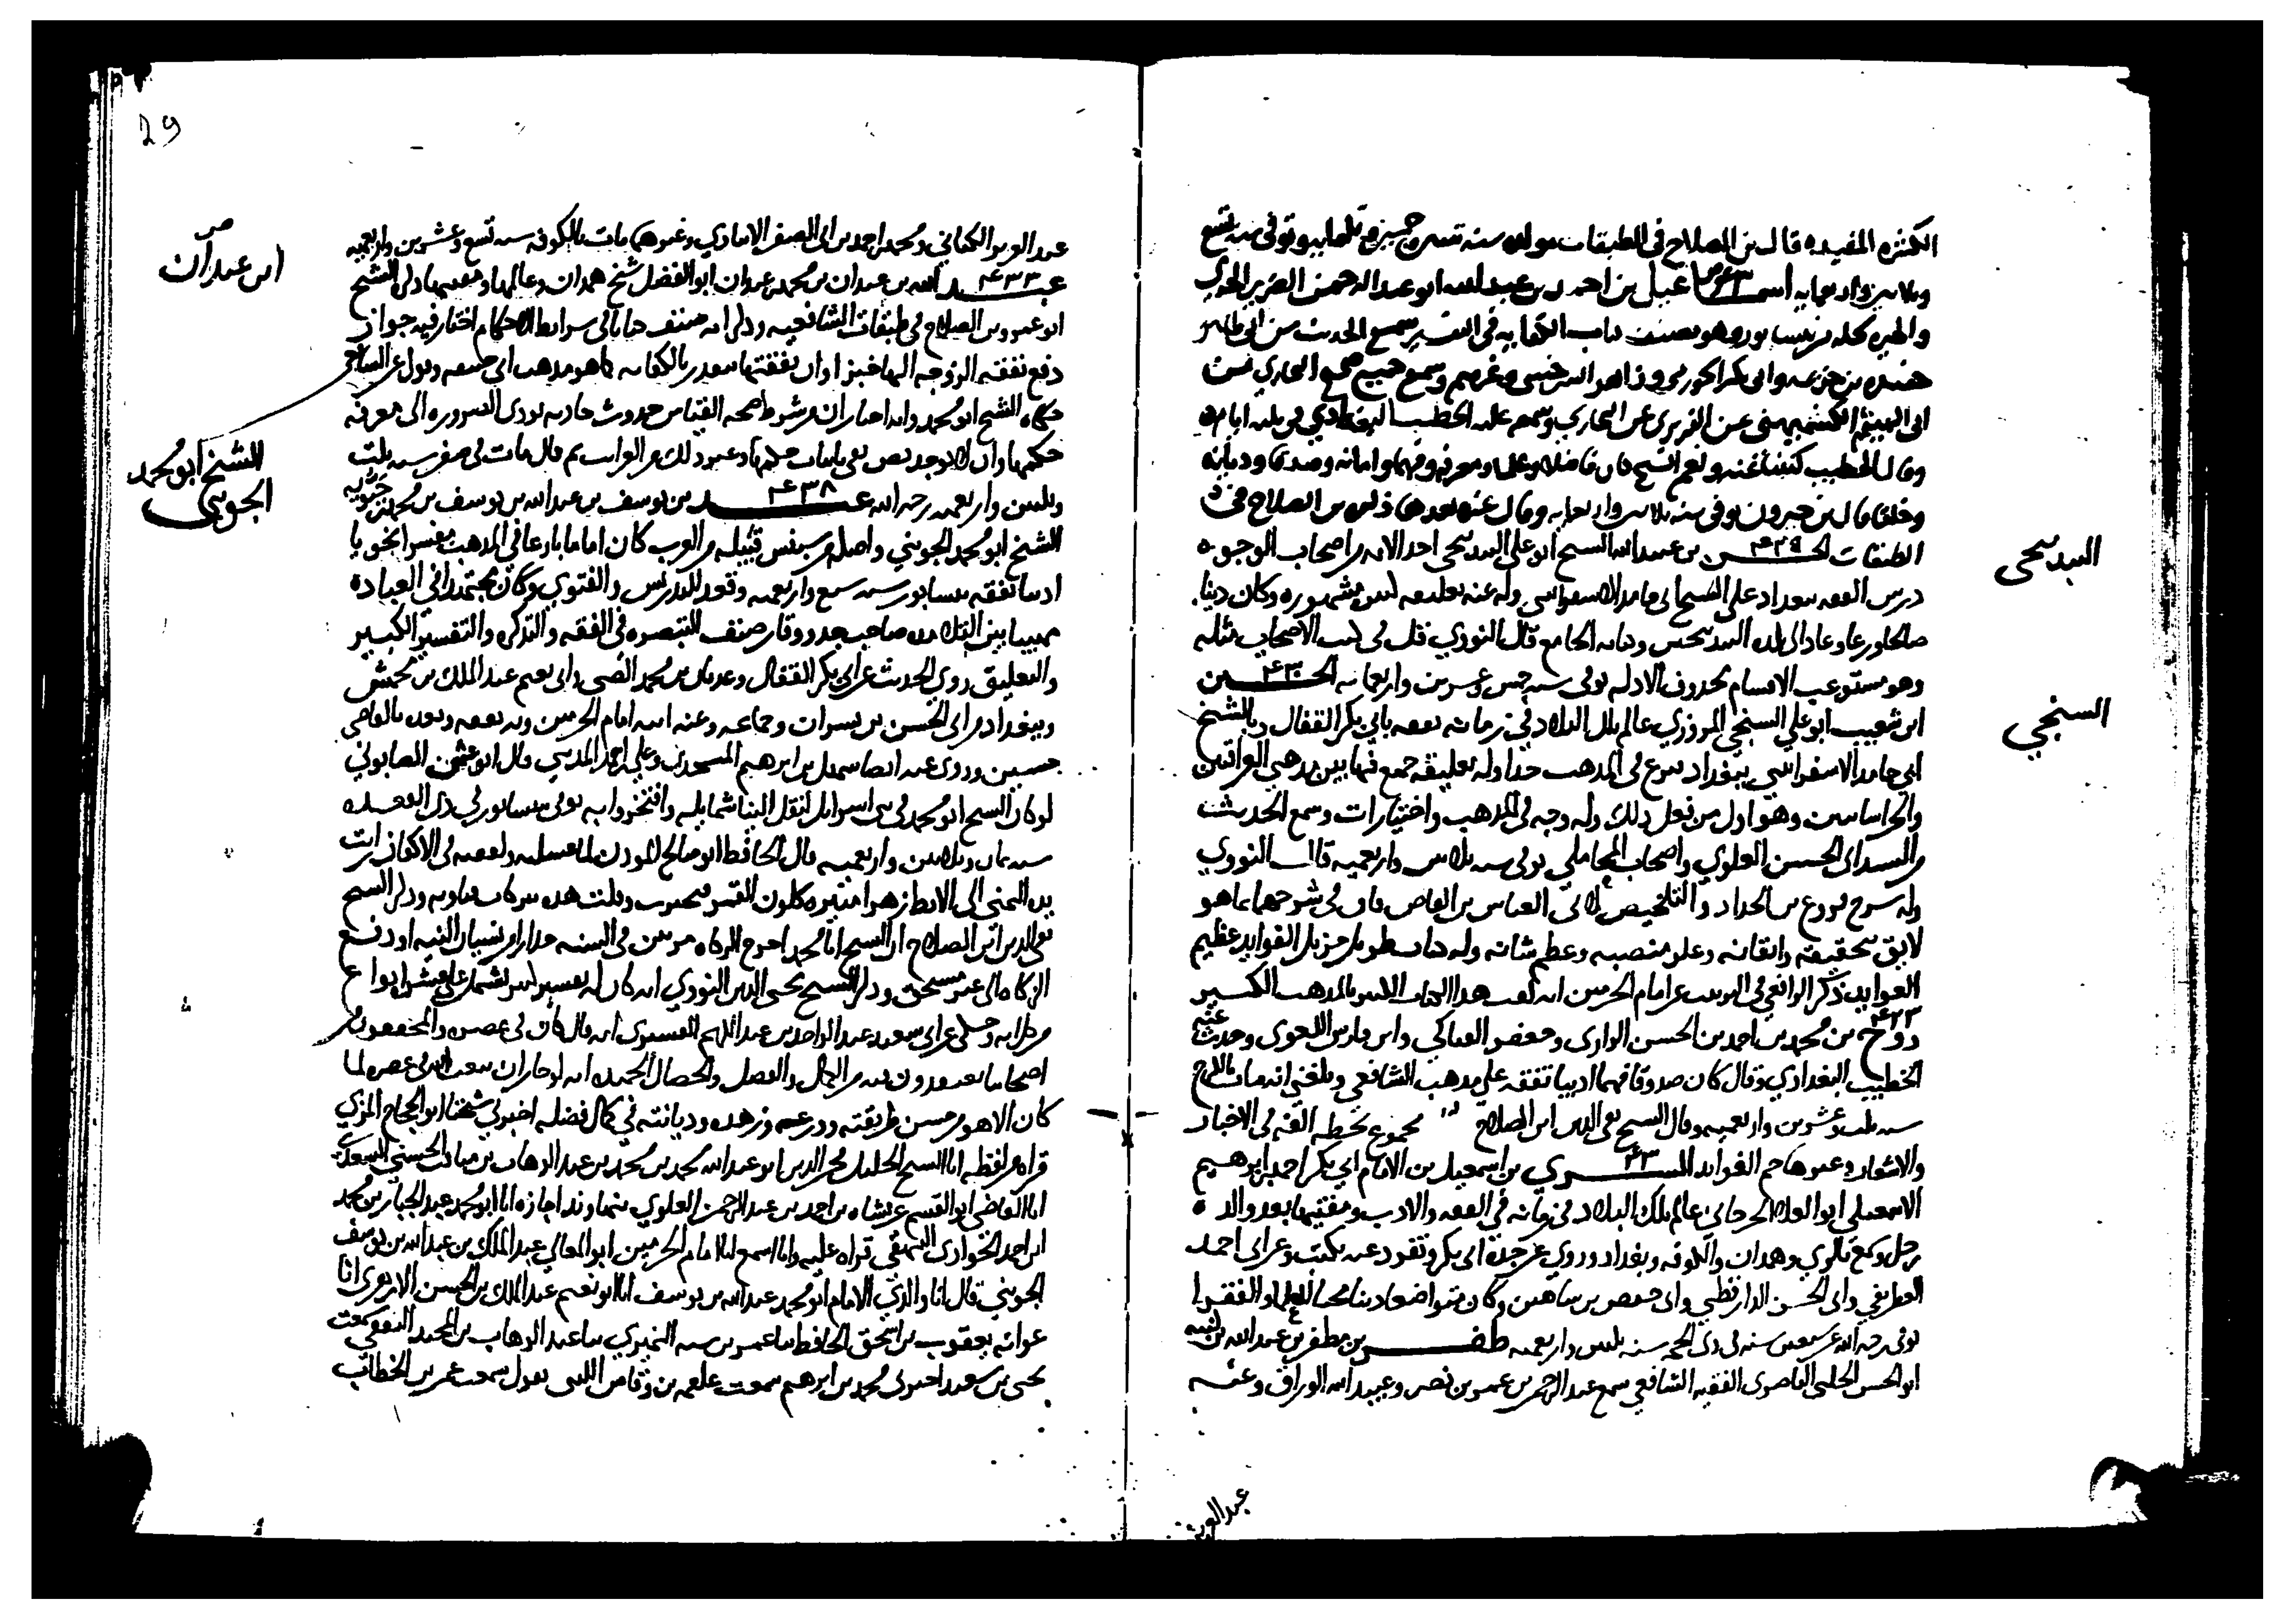 الكثيره المفيده قال ابن الصلاح في الطبقات مولده سنه وخمسين وثلثمايه وتوفي سنه تسع
وثلاثين واربعمايه اسماعيل بن احمد بن عبد الله ابو عبد الرحمن الضرير الحيري
والحيره محله بنيسابور وهو مصنف كتاب الكفايه في التفسير سمع الحديث من ابي طاهر
حفيده بن خزيمه وابي بكر الجوزقي وزاهر السرخسي وغيرهم وسمع جميع صحيح البخاري من
ابي الهيثم الكشميهني عن الفربري عن البخاري وسمعه عليه الخطيب البغدادي في ثلثه ايام
وقال الخطيب كتبنا عنه ونعم الشيخ كان فاضلا وعلما ومعرفه وفهما وامانه وصدقا وديانه
وخلقا قال بن خيرون توفي سنه ثلاثين واربعمايه وقال غيره بعدها ذكره بن الصلاح في
الطبقات الحسن بن عبد الله الشيخ ابو علي البندنيجي احد الايمه من اصحاب الوجوه
درس الفقه ببغداد علي الشيخ ابي حامد الاسفرايني وله عنه تعليقه مشهوره وكان دينا
صالحا ورعا وعاد الي بلده البندنيجين وكتابه الجامع قال النووي قل في كتب الاصحاب مثله
وهو مستوعب الاقسام محذوف الادله توفي سنه خمس وعشرين واربعمايه الحسين
ابن شعيب ابو علي السنجي المروزي عالم تلك البلاد في زمانه تفقه بابي بكر القفال وبالشيخ
ابي حامد الاسفرايني ببغداد برع في المذهب جدا وله تعليقه جمع فيها بين مذهبي العراقيين
والخراسانيين وهو اول من فعل ذلك وله وجه في المذهب واختيارات وسمع الحديث
من السيد ابي الحسن العلوي واصحاب المحاملي توفي سنه ثلاثين واربعميه قال النووي
وله شرح فروع بن الحداد والتلخيص لابي العباس بن القاص فاتي في شرحهما بما هو
لايق بتحقيقه واتقانه وعلو منصبه وعظم شانه وله كتاب طويل جزيل الفوايد عظيم
العوايد ذكر الرافعي في عن امام الحرمين انه لقب هذا الكتاب بالمذهب الكبير
روح بن محمد بن احمد بن الحسن الرازي وجعفر الفناكي وابن فارس اللغوي وحدث عنهم
الخطيب البغدادي وقال كان صدوقا فهما اديبا تفقه علي مذهب الشافعي وبلغني انه مات بالكرج
سنه ثلث وعشرين واربعميه وقال الشيخ تقي الدين ابن الصلاح له مجموع بخطه الفه في الاخبار
والاشعار وغيرها جم الفوايد السري بن اسمعيل بن الامام ابي بكر احمد بن ابرهيم
الاسمعيلي ابو العلا الجرجاني عالم تلك البلاد في زمانه في الفقه والادب ومفتيها بعد والده
رحل وسمع بالري وهمدان والكوفه وبغداد وروي عن جده ابي بكر وتفرد عنه بكتب وعن ابي احمد
الغطريفي وابي الحسن الدارقطني وابي حفص بن شاهين وكان متواضعا دينا محبا للعلما والفقرا
توفي رحمه الله عن سبعين سنه في ذي الحجه سنه ثلثين واربعميه ظفر بن مظفر بن عبد الله بن
ابو الحسن الحلبي الناصري الفقيه الشافعي سمع عبد الرحمن بن عمر بن نصر وعبيد الله الوراق وعنه
البندنيجي
السنجي
عبد العزيز
29
عبد العزيز الكتاني ومحمد بن احمد بن ابي الصقر الانباري وغيرهما مات بالكوفه سنه تسع وعشرين واربعميه
عبد الله بن عبدان بن محمد بن عبدان ابو الفضل شيخ همدان وعالمها ومفتيها ذكره الشيخ
ابو عمرو بن الصلاح في طبقات الشافعيه وذكر انه صنف كتابا في شرايط الاحكام اختار فيه جواز
دفع نفقه الزوجه اليها خبزا وان نفقتها مقدره بالكفايه كما هو مذهب ابي حنيفه
حكاه الشيخ ابو محمد وانه اختار ان من شرط صحه القياس حدوث حادثه تودي الضروره الي معرفه
حكمها وان لا يوجد نص يفي باثبات حكمها وغير ذلك من الغرايب ثم قال مات في صفر سنه ثلث
وثلثين واربعميه رحمه الله عبد الله بن يوسف بن عبد الله بن يوسف بن محمد بن حيويه
الشيخ ابو محمد الجويني واصله من سنبس قبيله من العرب كان اماما بارعا في المذهب مفسرا نحويا
اديبا تفقه بنيسابور سنه سبع واربعميه وقعد للتدريس والفتوي وكان مجتهدا في العباده
مهيبا بين التلامذه صاحب جد ووقار صنف التبصره في الفقه والتذكره والتفسير الكبير
والتعليق روي الحديث عن ابي بكر القفال وعدنان بن محمد الضبي وابي نعيم عبد الملك بن محمش
وببغداد من ابي الحسن بن بشران وجماعه وعنه ابنه امام الحرمين وبه تفقه
حسين وروي عنه ايضا سهل بن ابرهيم المسجدي وعلي بن احمد المديني قال ابو عثمن الصابوني
لو كان الشيخ ابو محمد في بني اسرايل لنقل الينا شمايله وافتخروا به توفي بنيسابور في ذي القعده
سنه ثمان وثلثين واربعميه قال الحافظ ابو صالح الموذن لما غسلته ولففته في الاكفان رايت
يده اليمني الي الابط زهرا منيره كلون القمر فتحيرت وقلت هذه بركات فتاويه وذكر الشيخ
تقي الدين ابن الصلاح ان الشيخ ابا محمد اخرج الزكاه مرتين في السنه حذارا من نسيان النيه او دفع
الزكاه الي غير مستحق وذكر الشيخ محيي الدين النووي انه كان له تفسير كبير يشتمل علي عشر انواع
وحكي عن ابي سعيد عبد الواحد بن عبد الكريم القشيري انه قال كان في عصره والمحققون من
اصحابنا يعتقدون فيه من الكمال والفضل والخصال الحميده انه لو جاز ان يبعث الله في عصره لما
كان الا هو من حسن طريقته وورعه وزهده وديانته في كمال فضله اخبرني شيخنا ابو الحجاج المزي
قراه من لفظه انا الشيخ الجليل فخر الدين ابو عبد الله محمد بن محمد بن عبد الوهاب بن مناقب الحسني
انا القاضي ابو القسم عربشاه بن احمد بن عبد الرحمن العلوي بنهاوند اجازه انا ابو محمد عبد الجبار بن محمد
ابن احمد الخواري البيهقي قراه عليه وانا اسمع انا امام الحرمين ابو المعالي عبد الملك بن عبد الله بن يوسف
الجويني قال انا والدي الامام ابو محمد عبد الله بن يوسف انا ابو نعيم عبد الملك بن الحسن الازهري انا
عوانه يعقوب بن اسحق الحافظ ثنا عمر بن شبه النميري ثنا عبد الوهاب بن المجيد الثقفي سمعت
يحيي بن سعيد اخبرني محمد بن ابرهيم سمعت علقمه بن وقاص الليثي يقول سمعت عمر بن الخطاب
ابن عبدان
الشيخ ابو محمد
الجويني